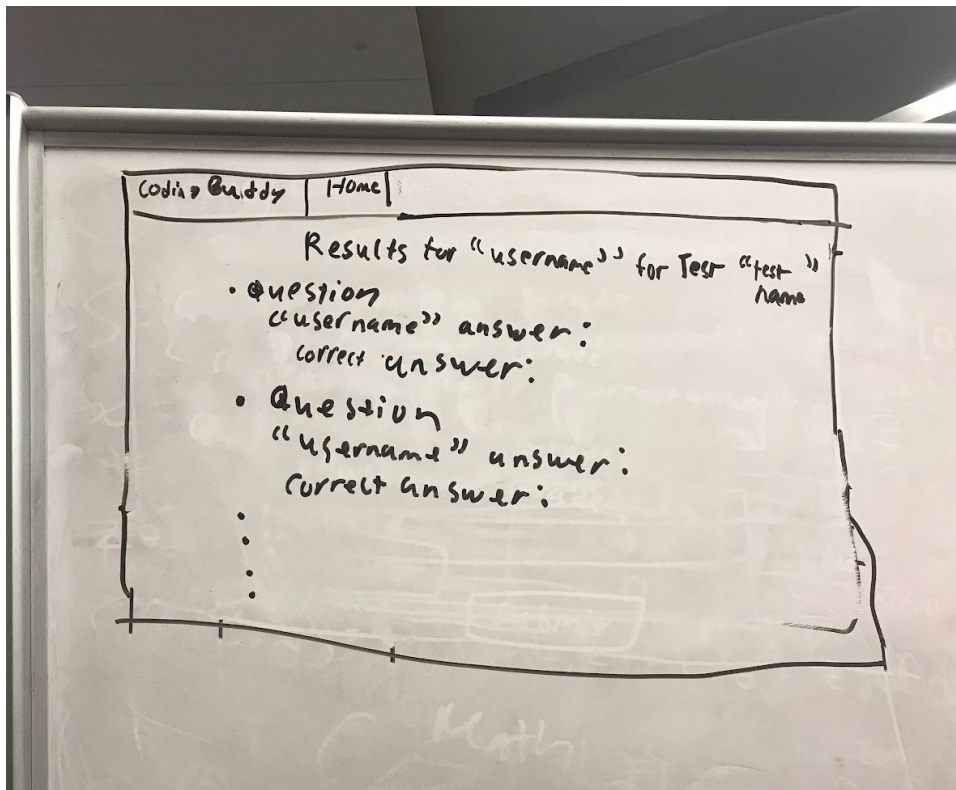 Coding Buddy Home
Results for "username" for Test "test name"
• Question
"username" answer:
correct answer:
• Question
"username" answer:
correct answer:
Math